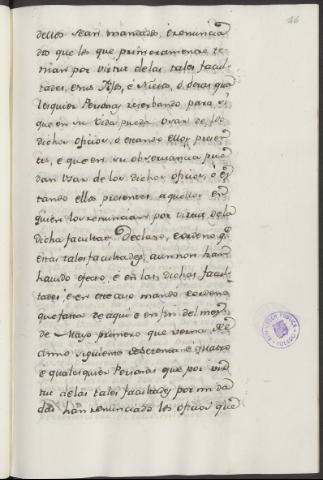 46
dellos sean tomados, é renuncia
dos que los que primeramente te
nian por virtud de las tales facul
tades, en sus Fijos, é Nietos, ó otras qua
lesquier Personas reserbando para sí
que en su vida puedan vsar de los
dichos oficios, ó cuando ellos presen
tes, é que en su observancia pue
dan vsar de los dichos oficios, ó es
tando ellos presentes aquellos en
quien los renunciaron por virtud de la
dicha facultad. Declaro, é ordeno q.e
estas tales facultades, aun non han
havido efecto, é en las dichas facul
tades é en este caso mando é ordeno
que fasta de aqui é en fin del mes
de Mayo primero que verna del
Año siguiente de setenta é quatro
é qualesquier Personas que por vir
tud de las tales facultades por mi da
das han renunciado los oficios que
BIBLIOTECA PUBLICA TOLEDO